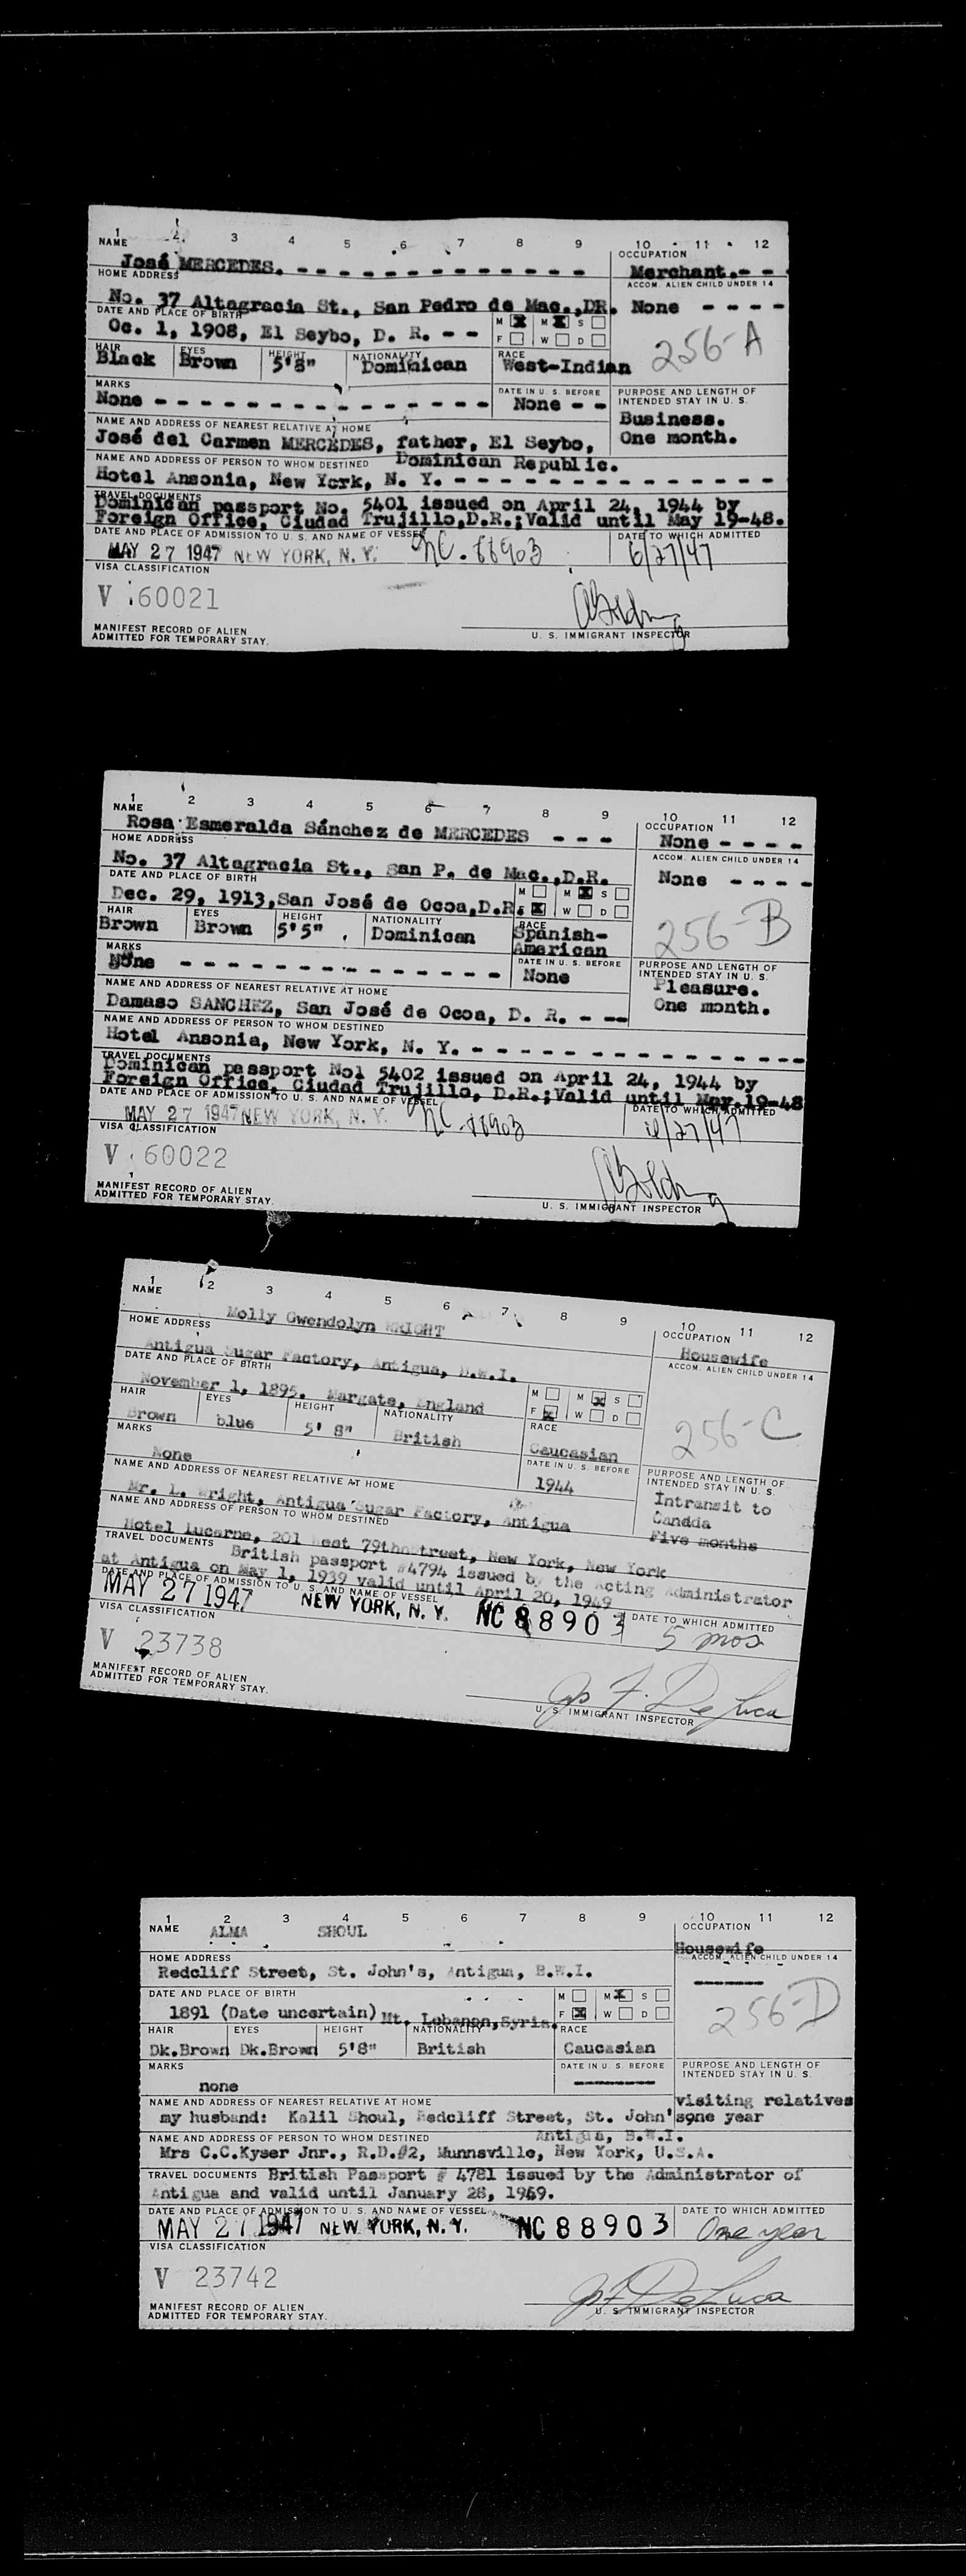 1 2. 3 4 5 6 7 8 9 10 11 12
NAME OCCUPATION
José MERCEDES. - - - - - - - - - - - - Merchant.- -
HOME ADDRESS ACCOM. ALIEN CHILD UNDER 14
No. 37 Altagracia St., San Pedro de Mac.,DR. None - - - -
DATE AND PLACE OF BIRTH M M S
Oc. 1, 1908, El Seybo, D. R. - - F W D
256-A
HAIR EYES HEIGHT NATIONALITY RACE
Black Brown 5'8" Dominican West-Indian
MARKS DATE IN U. S. BEFORE PURPOSE AND LENGTH OF INTENDED STAY IN U. S.
None - - - - - - - - - - - - - - - None - - Business.
NAME AND ADDRESS OF NEAREST RELATIVE AT HOME One month.
José del Carmen MERCEDES, father, El Seybo,
NAME AND ADDRESS OF PERSON TO WHOM DESTINED Dominican Republic.
Hotel Ansonia, New York, N. Y. - - - - - - - - - - - - -
TRAVEL DOCUMENTS
Dominican passport No. 5401 issued on April 24, 1944 by
Foreign Office, Ciudad Trujillo,D.R.;Valid until May 19-48.
DATE AND PLACE OF ADMISSION TO U. S. AND NAME OF VESSEL DATE TO WHICH ADMITTED
MAY 27 1947 NEW YORK, N. Y. NC. 88903 6/27/47
VISA CLASSIFICATION
V 60021
MANIFEST RECORD OF ALIEN
ADMITTED FOR TEMPORARY STAY. U. S. IMMIGRANT INSPECTOR
1 2 3 4 5 6 7 8 9 10 11 12
NAME OCCUPATION
Rosa Esmeralda Sánchez de MERCEDES - - - None - - - -
HOME ADDRESS ACCOM. ALIEN CHILD UNDER 14
No. 37 Altagracia St., San P. de Mac.,D.R. None - - - -
DATE AND PLACE OF BIRTH M M S
Dec. 29, 1913,San José de Ocoa,D.R. F W D
256-B
HAIR EYES HEIGHT NATIONALITY RACE
Brown Brown 5'5" Dominican Spanish-American
MARKS DATE IN U. S. BEFORE PURPOSE AND LENGTH OF INTENDED STAY IN U. S.
None - - - - - - - - - - - - - - None Pleasure.
NAME AND ADDRESS OF NEAREST RELATIVE AT HOME One month.
Damaso SANCHEZ, San José de Ocoa, D. R. - --
NAME AND ADDRESS OF PERSON TO WHOM DESTINED
Hotel Ansonia, New York, N. Y. - - - - - - - - - - - - - -
TRAVEL DOCUMENTS
Dominican passport No1 5402 issued on April 24, 1944 by
Foreign Office, Ciudad Trujillo, D.R.;Valid until May.19-48
DATE AND PLACE OF ADMISSION TO U. S. AND NAME OF VESSEL DATE TO WHICH ADMITTED
MAY 27 1947 NEW YORK, N. Y. NC-88903 6/27/47
VISA CLASSIFICATION
V 60022
MANIFEST RECORD OF ALIEN
ADMITTED FOR TEMPORARY STAY. U. S. IMMIGRANT INSPECTOR
1 2 3 4 5 6 7 8 9 10 11 12
NAME OCCUPATION
Molly Gwendolyn WRIGHT Housewife
HOME ADDRESS ACCOM. ALIEN CHILD UNDER 14
Antigua Sugar Factory, Antigua, B.W.I.
DATE AND PLACE OF BIRTH M M S
November 1, 1895. Margate, England F W D
256-C
HAIR EYES HEIGHT NATIONALITY RACE
Brown blue 5' 8" British Caucasian
MARKS DATE IN U. S. BEFORE PURPOSE AND LENGTH OF INTENDED STAY IN U. S.
None 1944 Intransit to
NAME AND ADDRESS OF NEAREST RELATIVE AT HOME Candda
Mr. L. Wright, Antigua Sugar Factory, Antigua Five months
NAME AND ADDRESS OF PERSON TO WHOM DESTINED
Hotel Lucerne, 201 West 79th street, New York, New York
TRAVEL DOCUMENTS British passport #4794 issued by the Acting Administrator
at Antigua on May 1, 1939 valid until April 20, 1949
DATE AND PLACE OF ADMISSION TO U. S. AND NAME OF VESSEL DATE TO WHICH ADMITTED
MAY 27 1947 NEW YORK, N. Y. NC 88903 5 mos
VISA CLASSIFICATION
V 23738
MANIFEST RECORD OF ALIEN
ADMITTED FOR TEMPORARY STAY. Jos F. De Luca
U. S. IMMIGRANT INSPECTOR
1 2 3 4 5 6 7 8 9 10 11 12
NAME ALMA SHOUL OCCUPATION
Housewife
HOME ADDRESS ACCOM. ALIEN CHILD UNDER 14
Redcliff Street, St. John's, Antigua, B.W.I. -------
DATE AND PLACE OF BIRTH M M S
1891 (Date uncertain) Mt. Lebanon,Syria. F W D
256-D
HAIR EYES HEIGHT NATIONALITY RACE
Dk.Brown Dk.Brown 5'8" British Caucasian
MARKS DATE IN U. S. BEFORE PURPOSE AND LENGTH OF INTENDED STAY IN U. S.
none --------
NAME AND ADDRESS OF NEAREST RELATIVE AT HOME visiting relatives
my husband: Kalil Shoul, Redcliff Street, St. John's one year
NAME AND ADDRESS OF PERSON TO WHOM DESTINED Antigua, B.W.I.
Mrs C.C.Kyser Jnr., R.D.#2, Munnsville, New York, U.S.A.
TRAVEL DOCUMENTS British Passport # 4781 issued by the Administrator of
Antigua and valid until January 28, 1949.
DATE AND PLACE OF ADMISSION TO U. S. AND NAME OF VESSEL DATE TO WHICH ADMITTED
MAY 27 1947 NEW YORK, N. Y. NC 88903 One year
VISA CLASSIFICATION
V 23742
MANIFEST RECORD OF ALIEN
ADMITTED FOR TEMPORARY STAY. Jos F De Luca
U. S. IMMIGRANT INSPECTOR